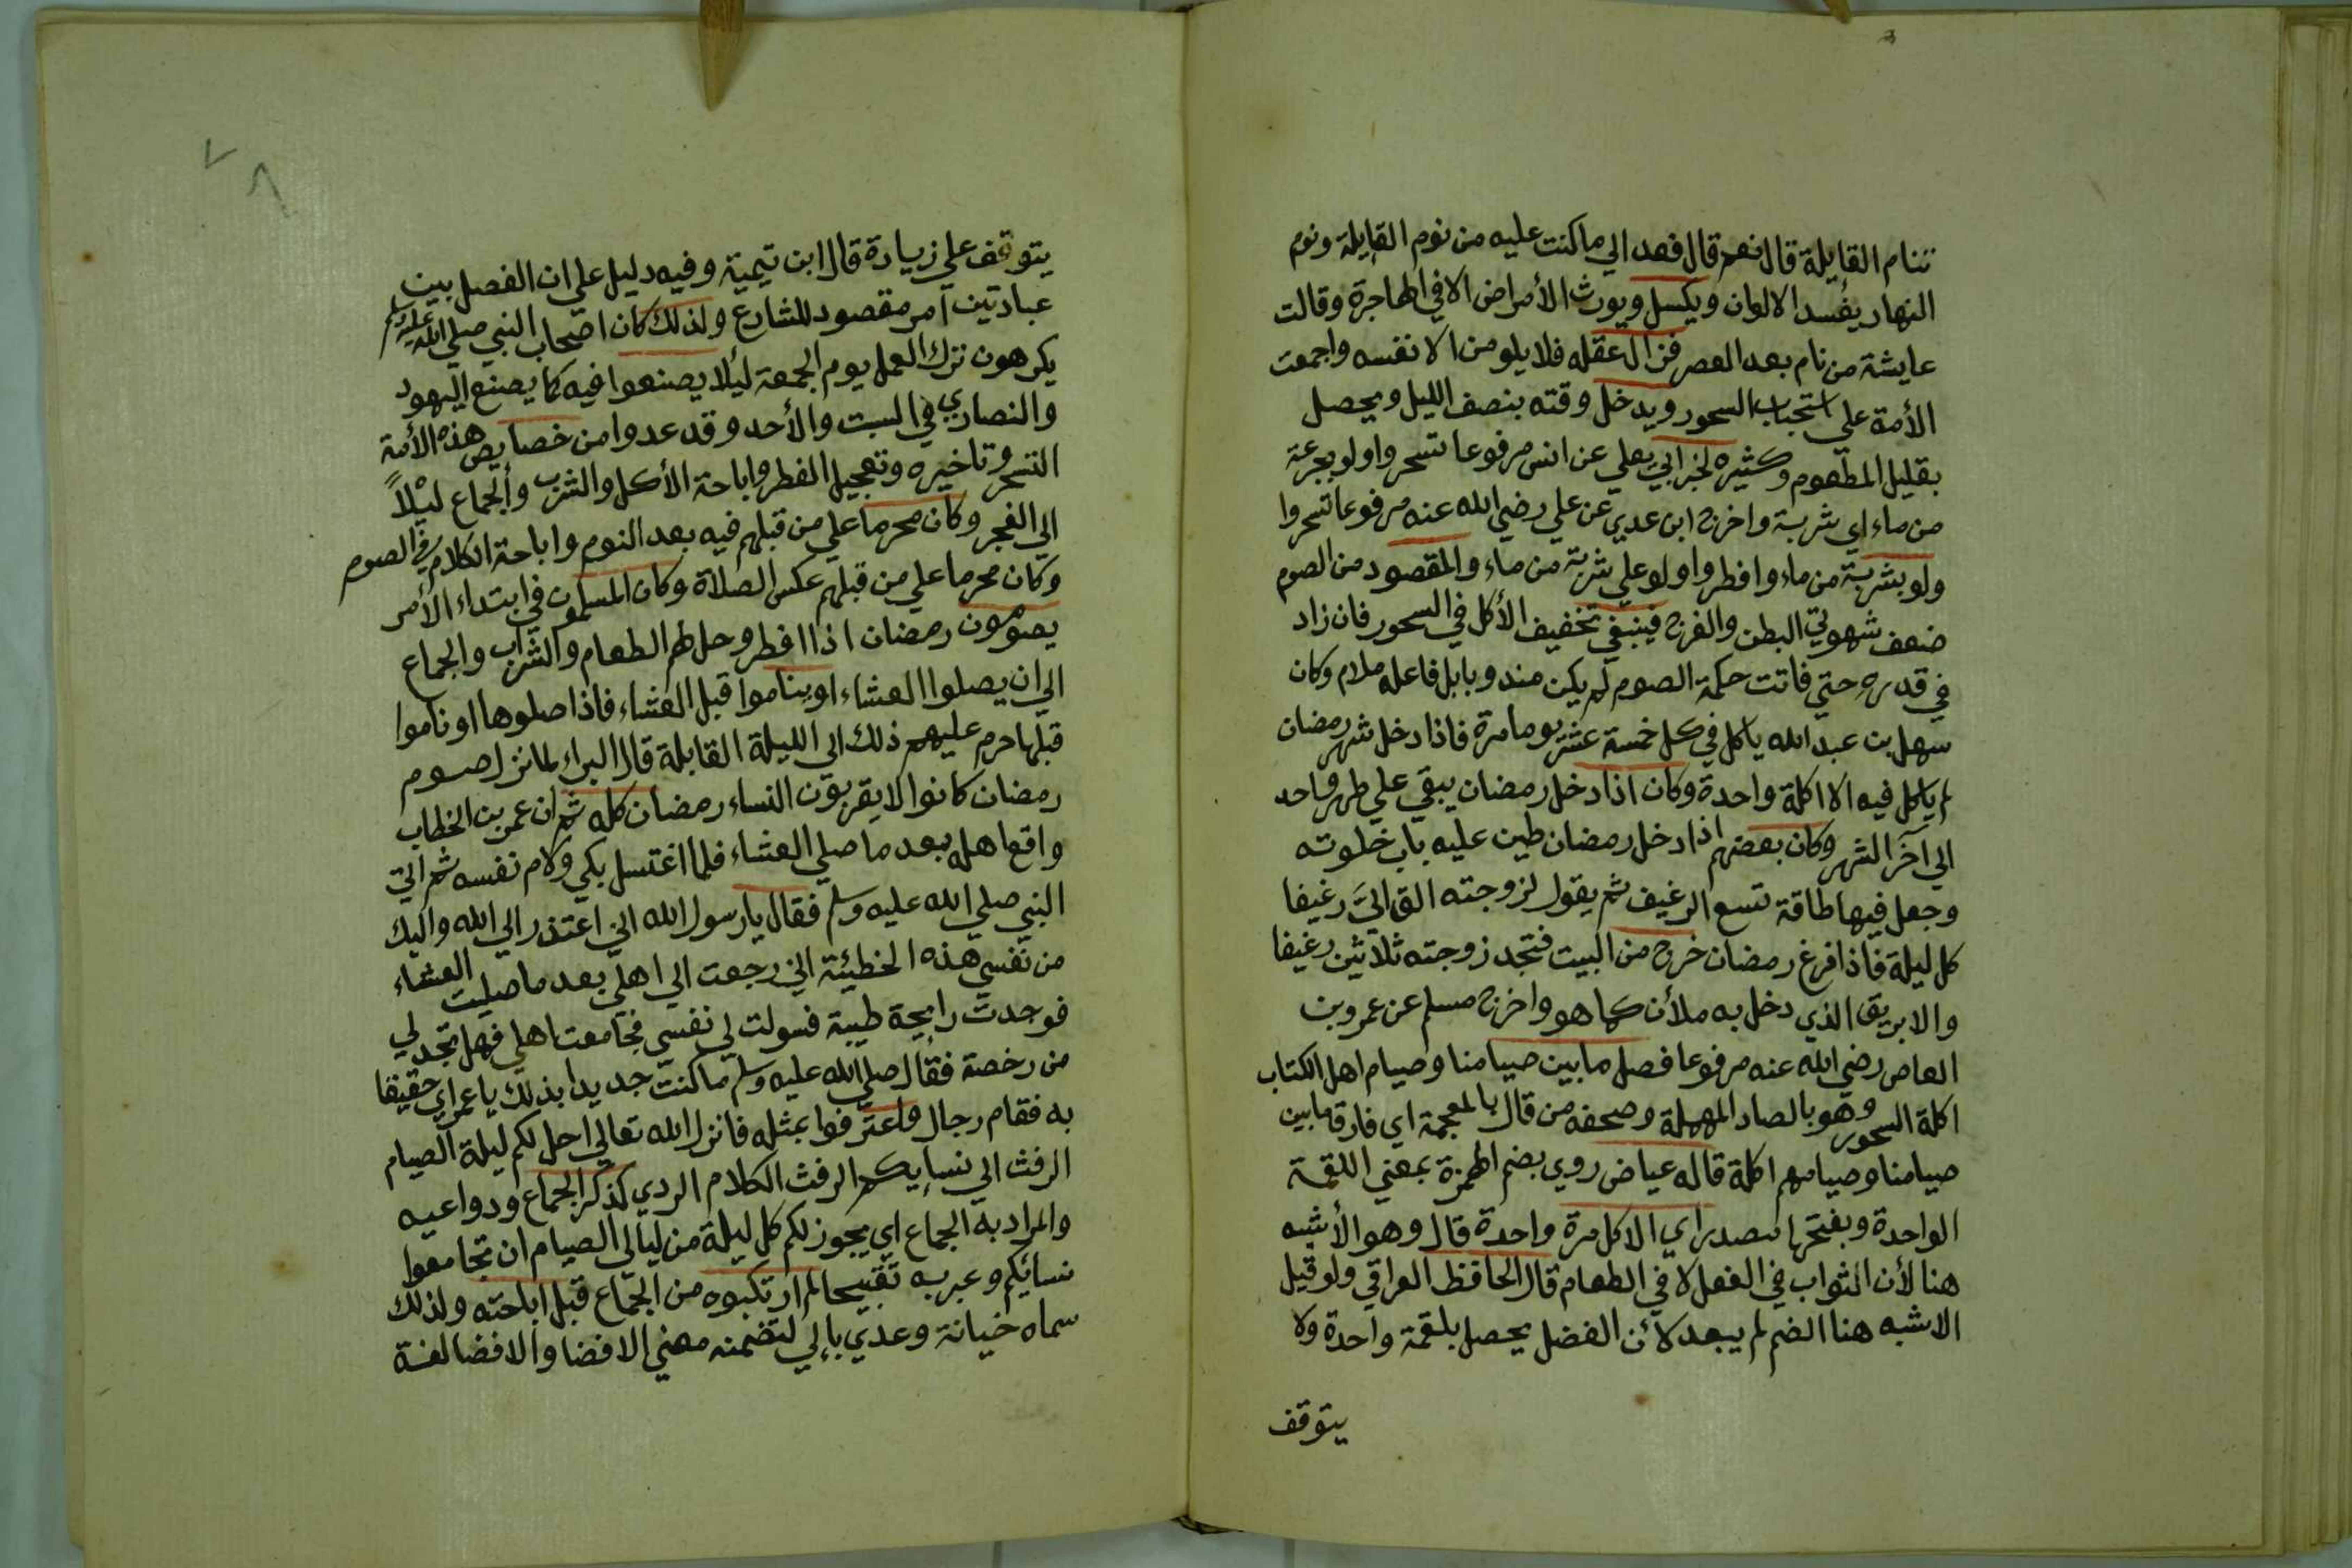 تنام القايلة قال نعم قال فعد الي ما كنت عليه من نوم القايلة ونوم
النهار يفسد الالوان ويكسل ويورث الأمراض الا في الهاجرة وقالت
عايشة من نام بعد العصر فزال عقله فلا يلومن الا نفسه واجمعت
الأمة علي استحباب السحور ويدخل وقته بنصف الليل ويحصل
بقليل المطعوم وكثيره لخبر ابي يعلي عن انس مرفوعا تسحروا ولو بجرعة
من ماء اي شربة واخرج ابن عدي عن علي رضي الله عنه مرفوعا تسحروا
ولو بشربة من ماء وافطروا ولو علي شربة من ماء والمقصود من الصوم
ضعف شهوتي البطن والفرج فينبغي تخفيف الأكل في السحور فان زاد
في قدره حتي فاتت حكمة الصوم لم يكن مندوبا بل فاعله ملام وكان
سهل بن عبد الله ياكل في كل خمسة عشر يوما مرة فاذا دخل شهر رمضان
لم ياكل فيه الا اكلة واحدة وكان اذا دخل رمضان يبقي علي طهر واحد
الي آخر الشهر وكان بعضهم اذا دخل رمضان طين عليه باب خلوته
وجعل فيها طاقة تسع الرغيف ثم يقول لزوجته القي اليَّ رغيفا
كل ليلة فاذا فرغ رمضان خرج من البيت فتجد زوجته ثلاثين رغيفا
والابريق الذي دخل به ملأن كما هو واخرج مسلم عن عمرو بن
العاص رضي الله عنه مرفوعا فصل ما بين صيامنا وصيام اهل الكتاب
اكلة السحور وهو بالصاد المهملة وصحفه من قال بالمعجمة اي فارق ما بين
صيامنا وصيامهم اكلة قاله عياض روي بضم الهمزة بمعني اللقمة
الواحدة وبفتحها مصدر اي الاكل مرة واحدة قال وهو الأشبه
هنا لأن الثواب في الفعل لا في الطعام قال الحافظ العراقي ولو قيل
الاشبه هنا الضم لم يبعد لأن الفضل يحصل بلقمة واحدة ولا
يتوقف
٧
٨
يتوقف علي زيادة قال ابن تيمية وفيه دليل علي ان الفصل بين
عبادتين امر مقصود للشارع ولذلك كان اصحاب النبي صلي الله عليه وسلم
يكرهون ترك العمل يوم الجمعة ليلا يصنعوا فيه كما يصنع اليهود
والنصاري في السبت والأحد وقد عدوا من خصايص هذه الأمة
التسحر وتاخيره وتعجيل الفطر واباحة الأكل والشرب والجماع ليْلاً
الي الفجر وكان محرما علي من قبلهم فيه بعد النوم واباحة الكلام في الصوم
وكان محرما علي من قبلهم عكس الصلاة وكان المسلمون في ابتداء الأمر
يصومون رمضان اذا افطر وحل لهم الطعام والشراب والجماع
الي ان يصلوا العشاء او يناموا قبل العشاء فاذا صلوها او ناموا
قبلها حرم عليهم ذلك الي الليلة القابلة قال البراء لما نزل صوم
رمضان كانوا لا يقربون النساء رمضان كله ثم ان عمر بن الخطاب
واقع اهله بعد ما صلي العشاء فلما اغتسل بكي ولام نفسه ثم اتي
النبي صلي الله عليه وسلم فقال يا رسول الله اني اعتذر الي الله واليك
من نفسي هذه الخطيئة اني رجعت الي اهلي بعد ما صليت العشاء
فوجدت رايحة طيبة فسولت لي نفسي فجامعت اهلي فهل تجد لي
من رخصة فقال صلي الله عليه وسلم ما كنت جديدا بذلك يا عمر اي حقيقا
به فقام رجال واعترفوا بمثله فانزل الله تعالي احل لكم ليلة الصيام
الرفث الي نسايكم الرفث الكلام الردي كذكر الجماع ودواعيه
والمراد به الجماع اي يجوز لكم كل ليلة من ليالي الصيام ان تجامعوا
نسائكم وعبر به تقبيحا لم ارتكبوه من الجماع قبل اباحته ولذلك
سماه خيانة وعدي بالي لتضمنه معني الافضا والافضا لغة